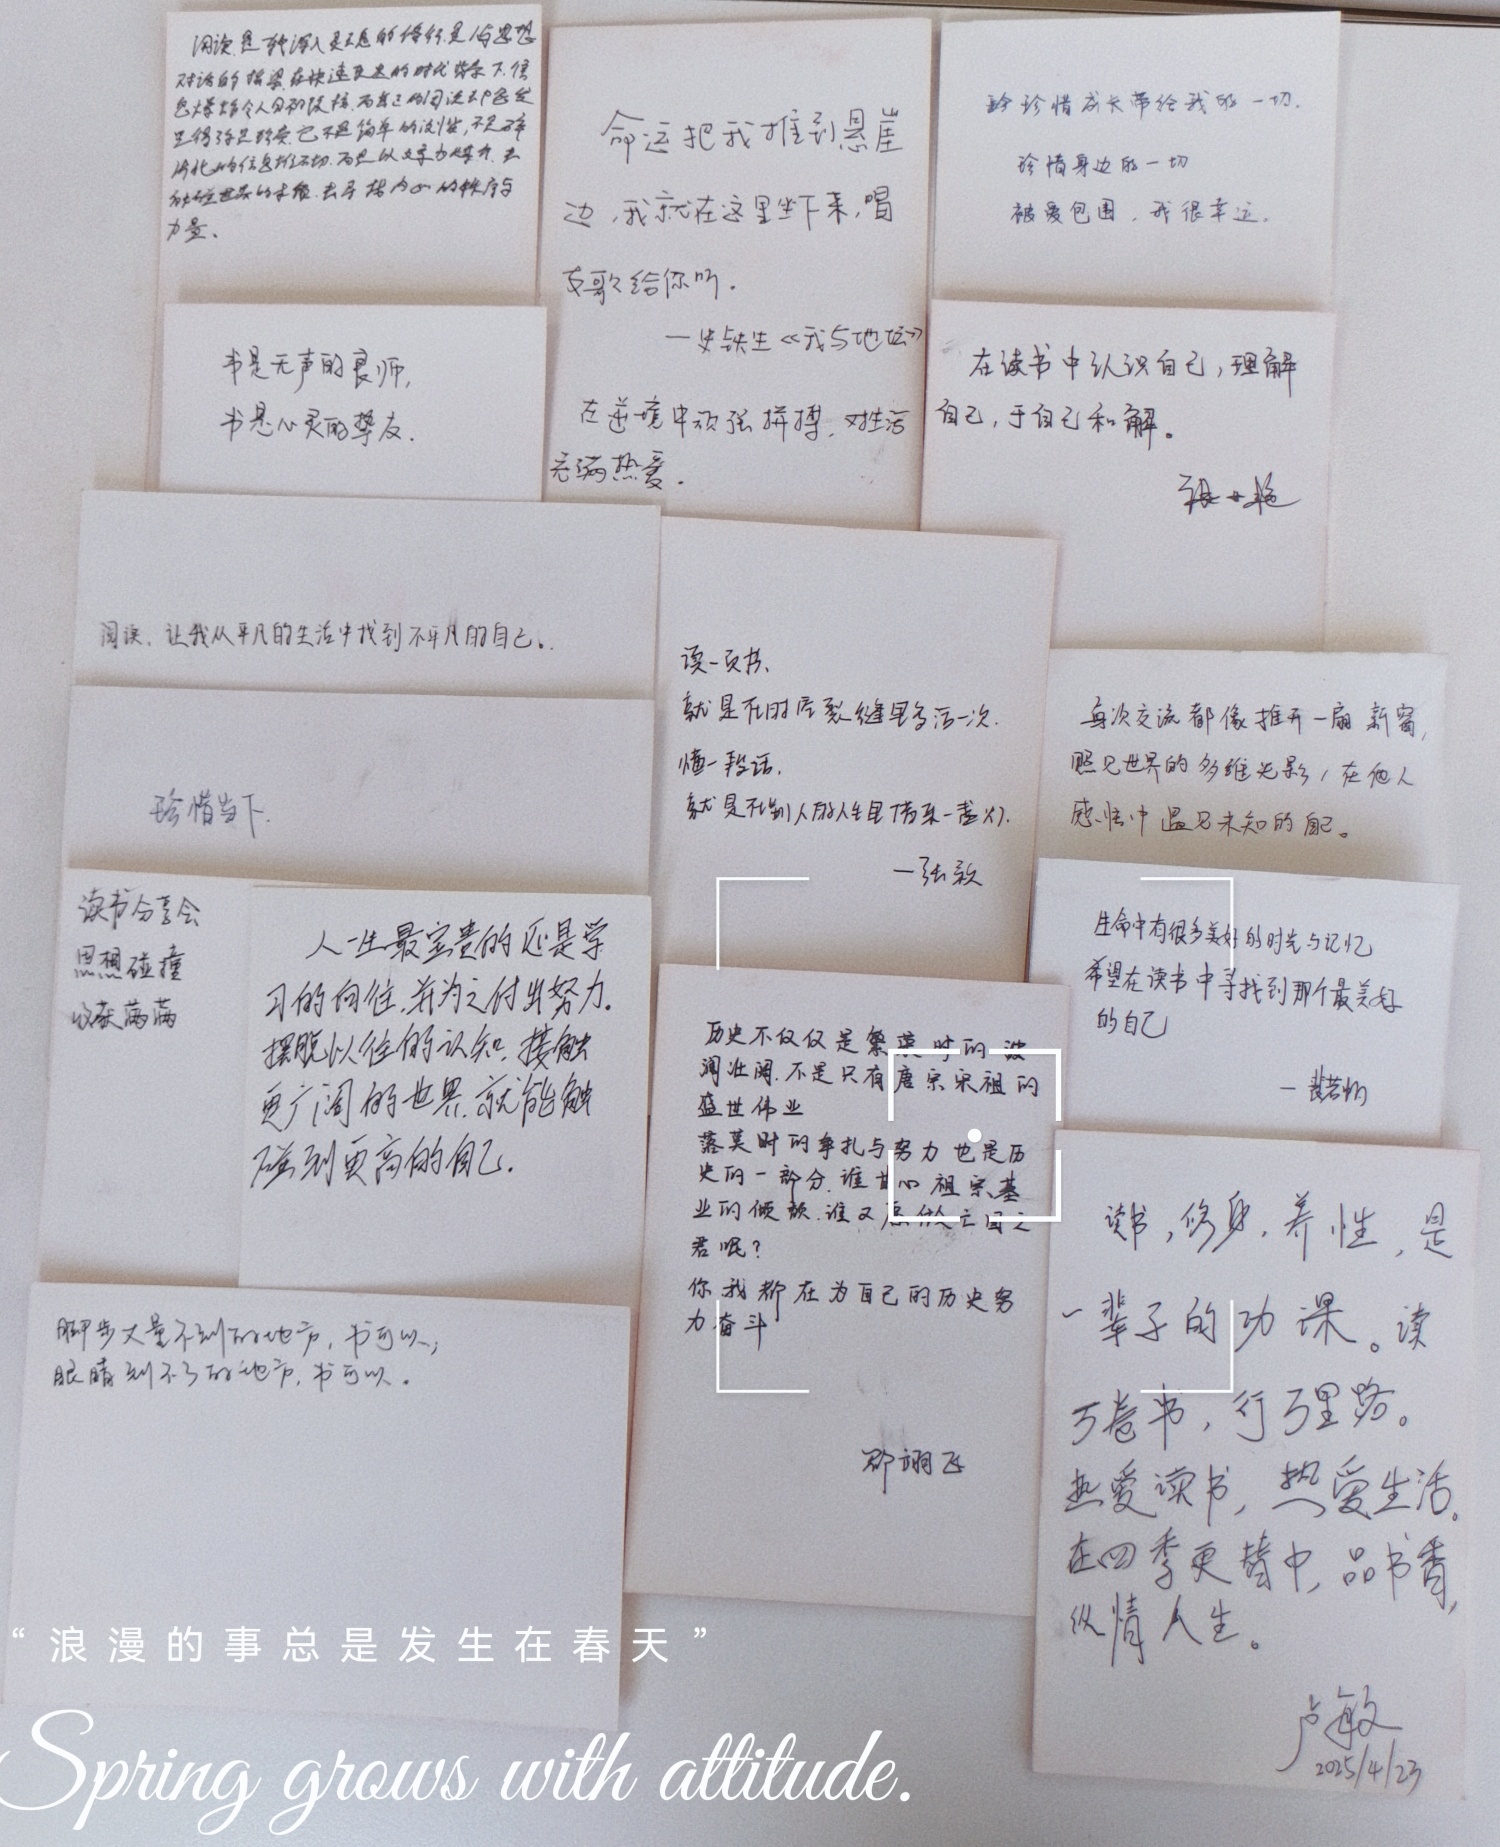 阅读是一种深入灵魂的修行,是与思想
对话的桥梁.在快速更迭的时代背景下,信
息大爆炸令人目不暇接,而真正的阅读却愈发
显得弥足珍贵.它不是简单的消遣,不是碎
片化的信息堆切.而是以文字为媒介,去
触碰世界的本质,去寻找内心的秩序与
力量。
书是无声的良师,
书是心灵的挚友.
命运把我推到悬崖
边,我就在这里坐下来,唱
支歌给你听.
—史铁生《我与地坛》
在逆境中顽强拼搏,对生活
充满热爱.
珍惜成长带给我的一切.
珍惜身边的一切
被爱包围,我很幸运.
在读书中认识自己,理解
自己,于自己和解。
阅读,让我从平凡的生活中找到不平凡的自己.
珍惜当下.
读书分享会
思想碰撞
收获满满
人一生最宝贵的还是学
习的向往,并为之付出努力.
摆脱以往的认知,接触
更广阔的世界,就能触
碰到更高的自己.
读一页书,
就是在时空裂缝里多活一次.
懂一段话,
就是在别人的人生里借来一盏灯.
每次交流都像推开一扇新窗,
照见世界的多维光影,在他人
感悟中遇见未知的自己。
生命中有很多美好的时光与记忆
希望在读书中寻找到那个最美好
的自己
历史不仅仅是繁荣时的波
澜壮阔,不是只有唐宗宋祖的
盛世伟业
落莫时的争扎与努力也是历
史的一部分,谁甘心祖宗基
业的倾颓,谁又愿做亡国之
君呢?
你我都在为自己的历史努
力奋斗
读书,修身,养性,是
一辈子的功课。读
万卷书,行万里路。
热爱读书,热爱生活。
在四季更替中,品书香,
纵情人生。
卢敏
2025/4/23
脚步丈量不到的地方,书可以;
眼睛到不了的地方,书可以。
“浪漫的事总是发生在春天”
Spring grows with attitude.